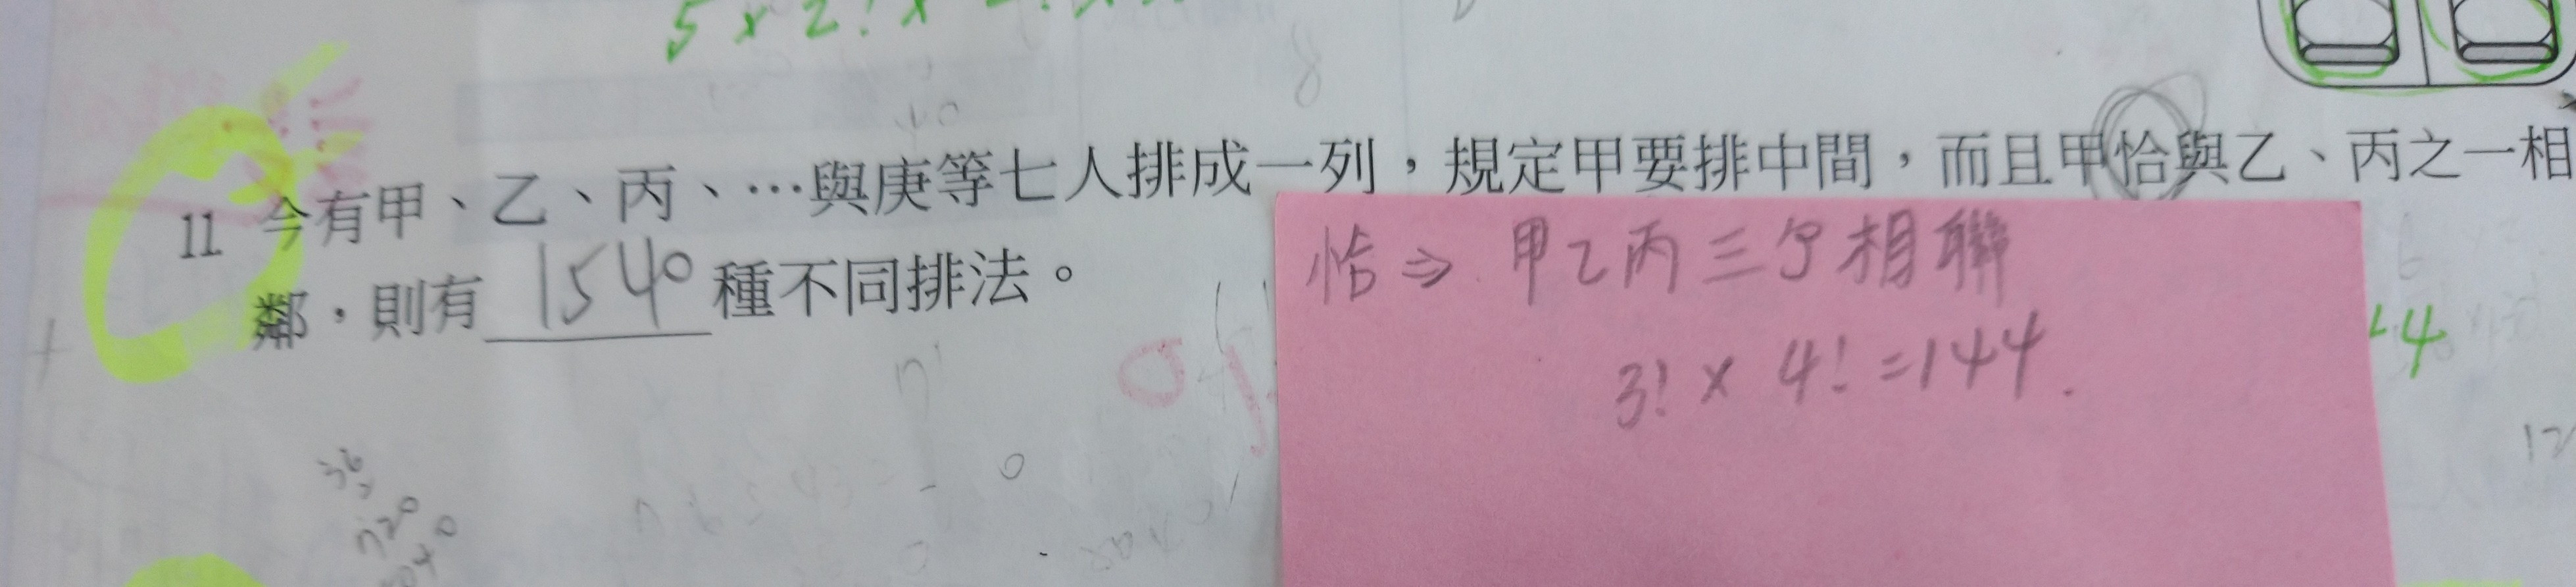 5 × 2! ×
8
40
11 今有甲、乙、丙、…與庚等七人排成一列，規定甲要排中間，而且甲恰與乙、丙之一相
鄰，則有 1540 種不同排法。
恰⇒甲乙丙三字相聯
3! × 4! = 144.
4
36
720